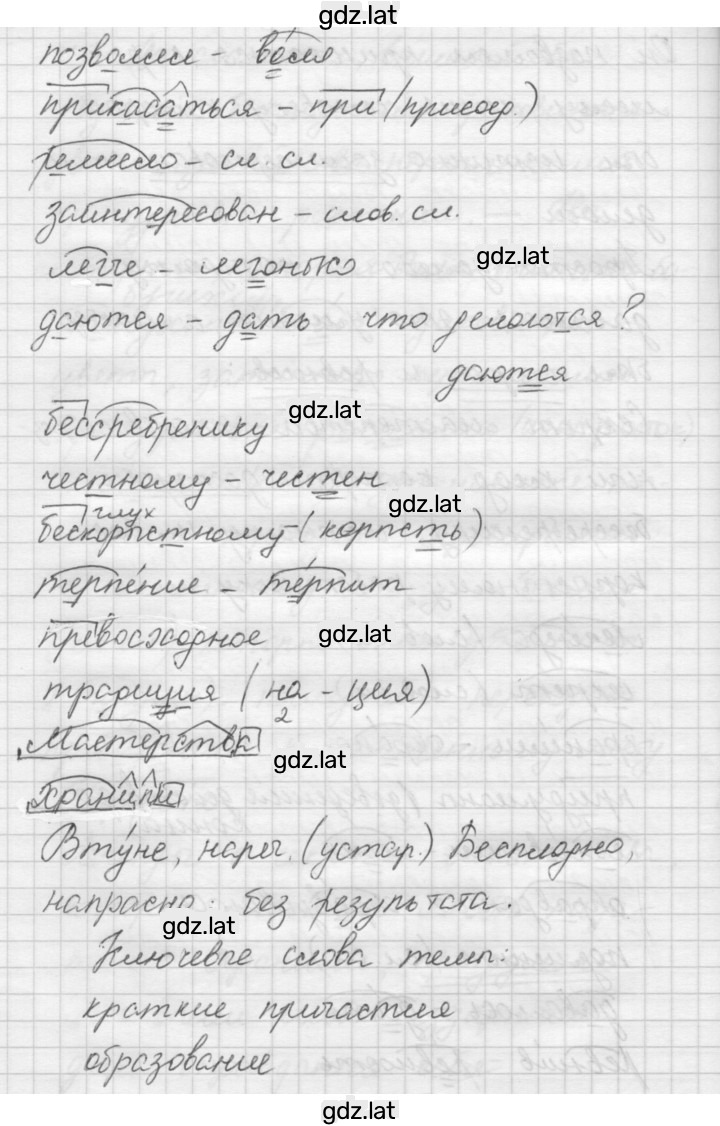 gdz.lat
позволили - во́ля
прикасаться - при (присоед.)
ремесло - сл. сл.
заинтересован - слов. сл.
gdz.lat
легче - легонько
даются - дать что делаются?
даются
gdz.lat
бессребренику
честному - честен
gdz.lat
глух
бескорыстному - (корысть)
терпе́ние - те́рпит
превосходное
gdz.lat
традиция (на - ция)
2
Мастерства
gdz.lat
хранили
Вту́не, нареч. (устар.) Бесплодно,
напрасно. без результата.
gdz.lat
Ключевые слова темы:
краткие причастия
образование
gdz.lat